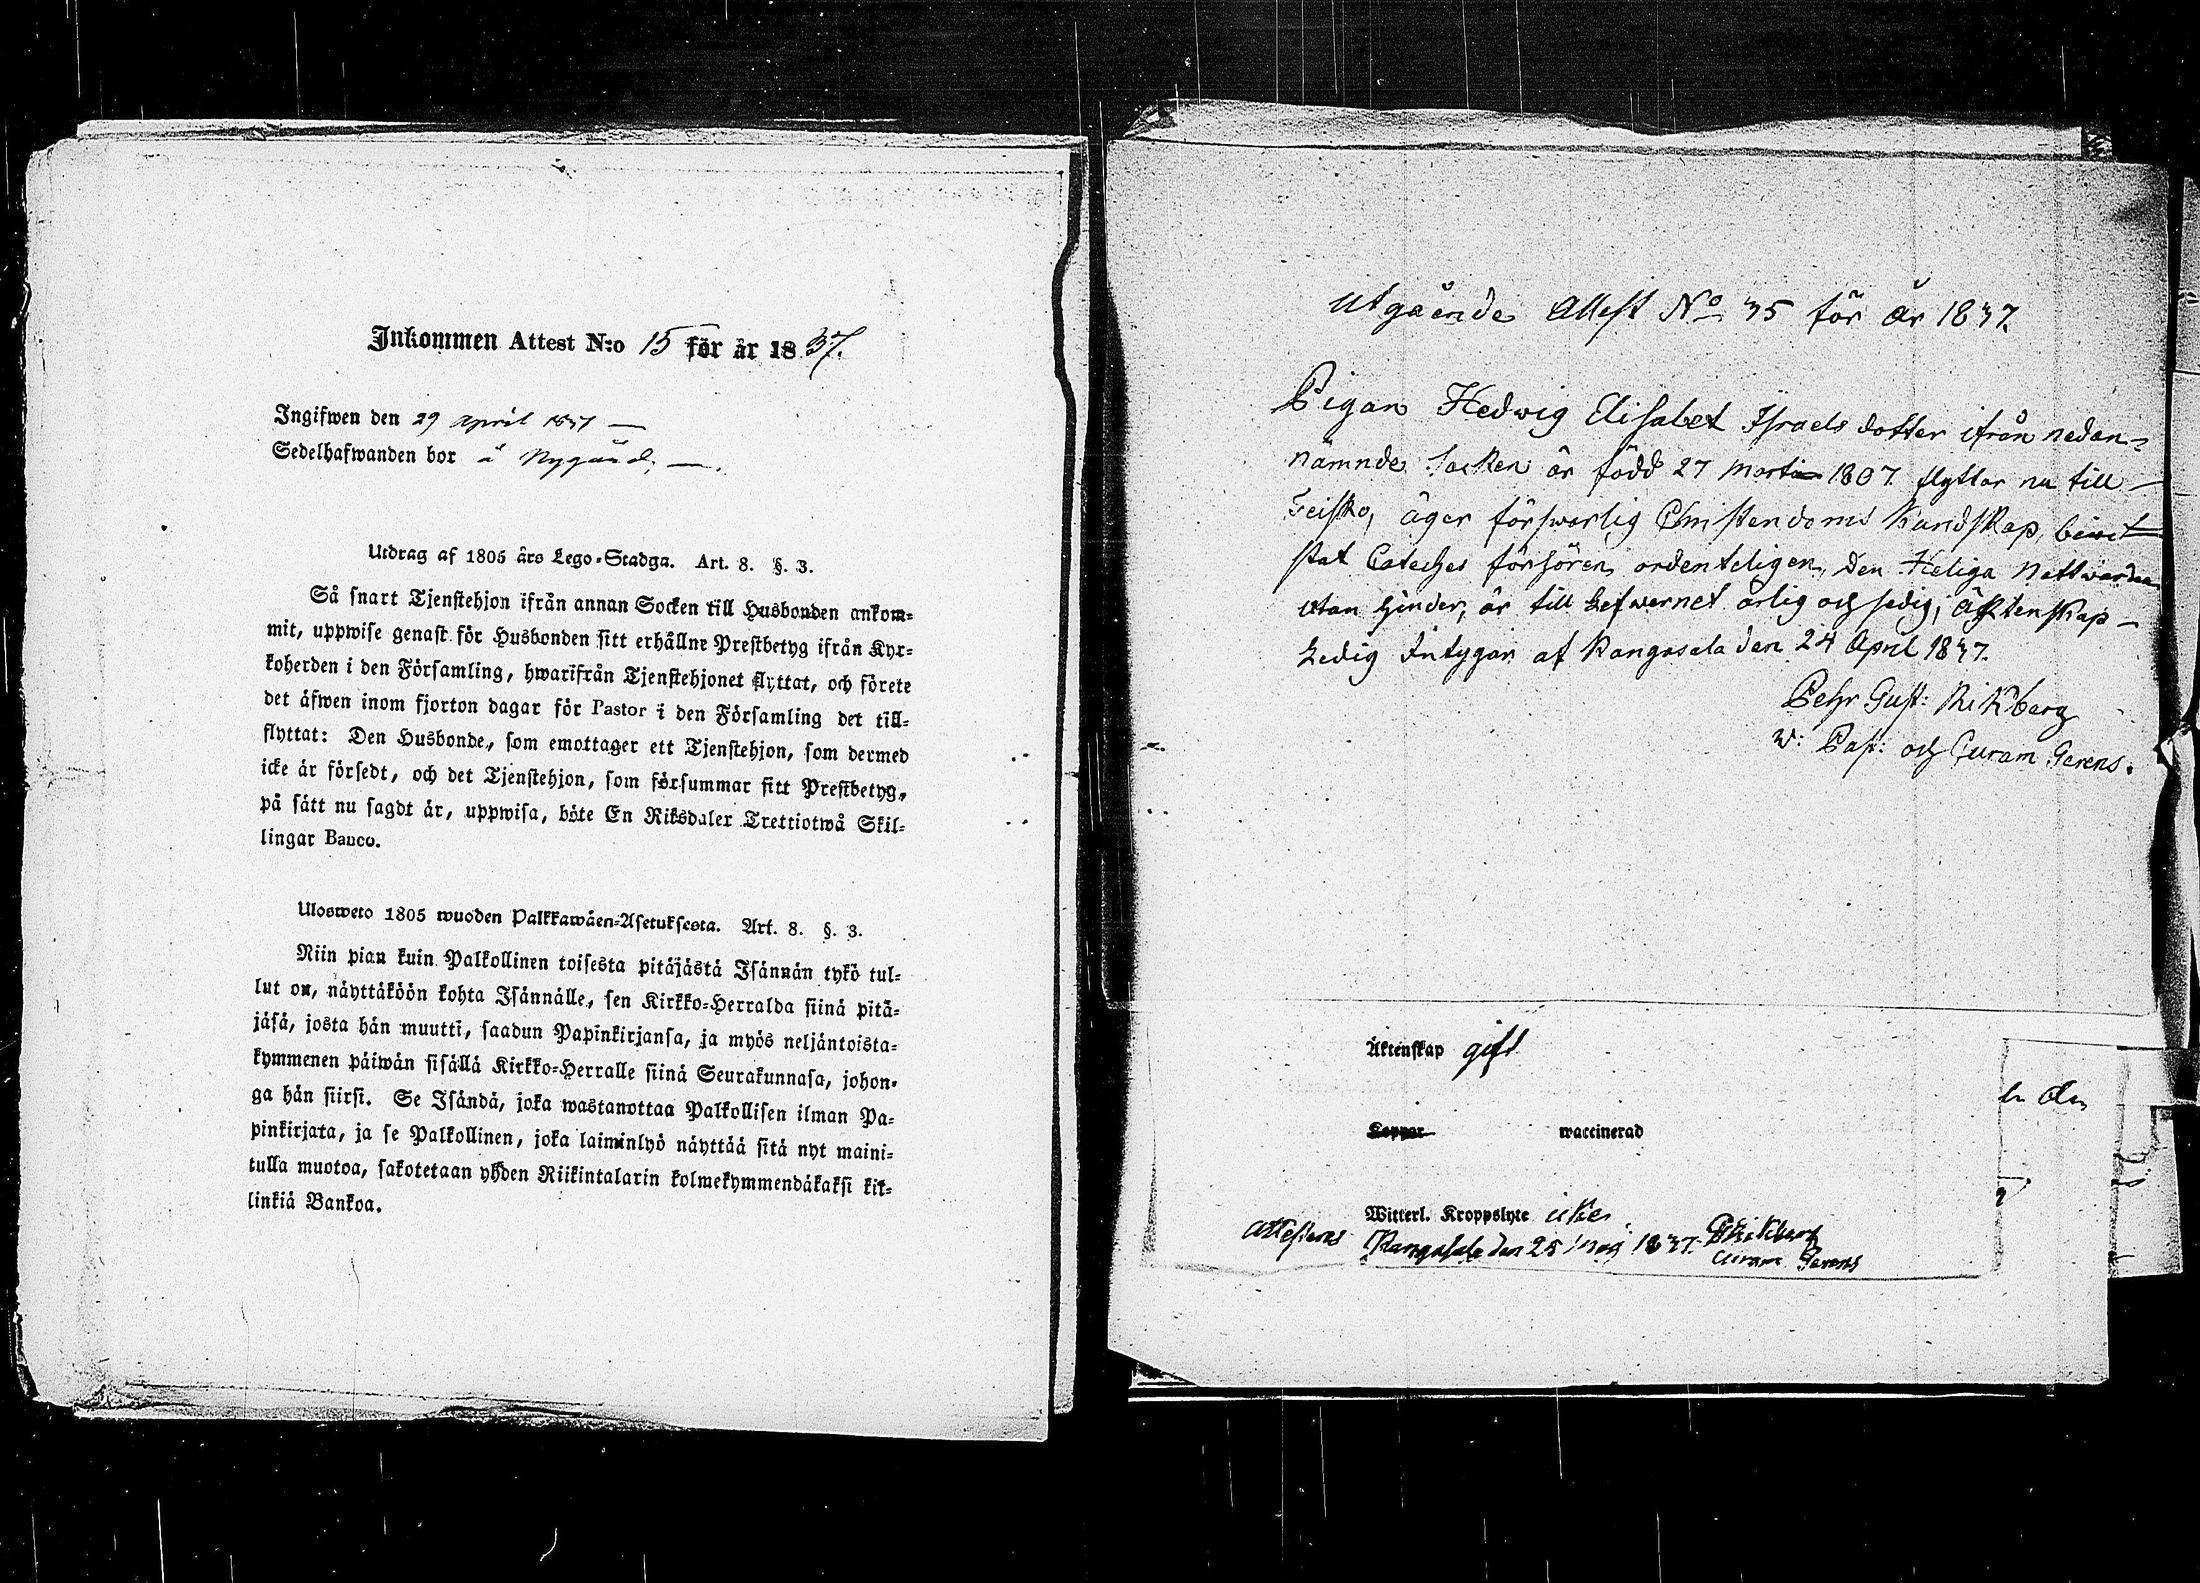 Inkommen Attest N:o 15 för år 1837.
Ingifwen den 29 April 1837 —
Sedelhafwanden bor å Nygård. —.
Utdrag af 1805 års Lego-Stadga. Art. 8. §. 3.
Så snart Tjenstehjon ifrån annan Socken till Husbonden ankom-
mit, uppwise genast för Husbonden sitt erhållne Prestbetyg ifrån Kyr-
koherden i den Församling, hwarifrån Tjenstehjonet flyttat, och förete
det äfwen inom fjorton dagar för Pastor i den Församling det till-
flyttat: Den Husbonde, som emottager ett Tjenstehjon, som dermed
icke är försedt, och det Tjenstehjon, som försummar sitt Prestbetyg,
på sätt nu sagdt är, uppwisa, böte En Riksdaler Trettiotwå Skil-
lingar Banco.
Ulosweto 1805 wuoden Palkkawäen-Asetuksesta. Art. 8. §. 3.
Niin pian kuin Palkollinen toisesta pitäjästä Isännän tykö tul-
lut on, näyttäköön kohta Isännälle, sen Kirkko-Herralda siinä pitä-
jäsä, josta hän muutti, saadun Papinkirjansa, ja myös neljäntoista-
kymmenen päiwän sisällä Kirkko-Herralle siinä Seurakunnasa, johon-
ga hän siirsi. Se Isändä, joka wastanottaa Palkollisen ilman Pa-
pinkirjata, ja se Palkollinen, joka laiminlyö näyttää sitä nyt maini-
tulla muotoa, sakotetaan yhden Riikintalarin kolmekymmendäkaksi kil-
linkiä Bankoa.
Utgående Attest No 35 för År 1837.
Pigan Hedwig Elisabet Israels dotter ifrån nedan-
nämnde Socken är född 27 Marti 1807 flyttar nu till
Teisko, äger förswarlig Christendoms Kundskap, biwi
stat Cateches förhören ordenteligen, den Heliga Nattwarden
utan hinder, är till Lefwernet ärlig och sedig, Äktenskap
Ledig Intygar af Kangasala den 24 April 1837.
Pehr Gust: Rikberg
v: Past: och Curam Gerens.
Äktenskap gift
Koppor waccinerad
Witterl. Kroppslyte icke
Attesteras Kangasala den 25 Maj 1837. PRikberg
Curam Gerens